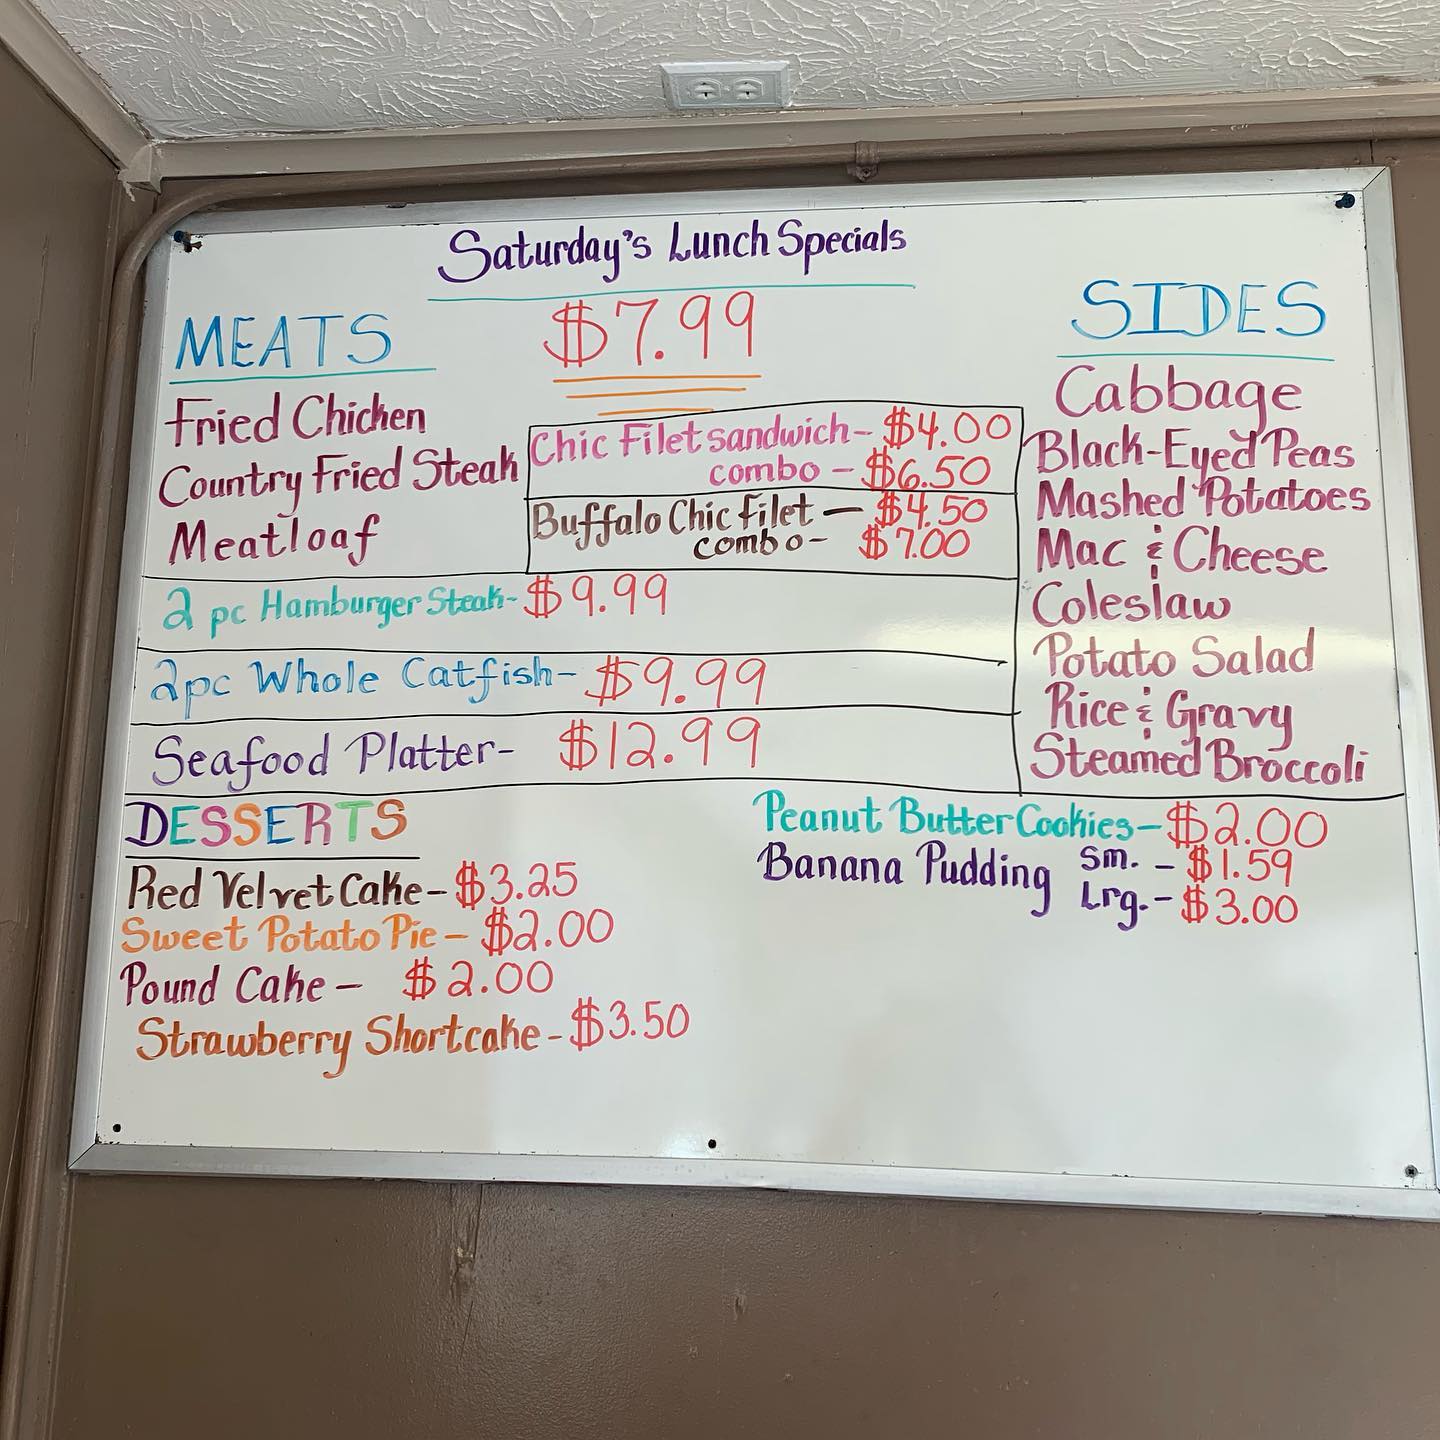 Saturday's Lunch Specials
$7.99
MEATS
Fried Chicken
Country Fried Steak
Meatloaf
Chic Filet sandwich- $4.00
combo - $6.50
Buffalo Chic filet - $4.50
combo- $7.00
2 pc Hamburger Steak- $9.99
2pc Whole Catfish- $9.99
Seafood Platter- $12.99
SIDES
Cabbage
Black-Eyed Peas
Mashed Potatoes
Mac & Cheese
Coleslaw
Potato Salad
Rice & Gravy
Steamed Broccoli
DESSERTS
Red Velvet Cake- $3.25
Sweet Potato Pie - $2.00
Pound Cake - $2.00
Strawberry Shortcake- $3.50
Peanut Butter Cookies- $2.00
Banana Pudding Sm. - $1.59
Lrg.- $3.00